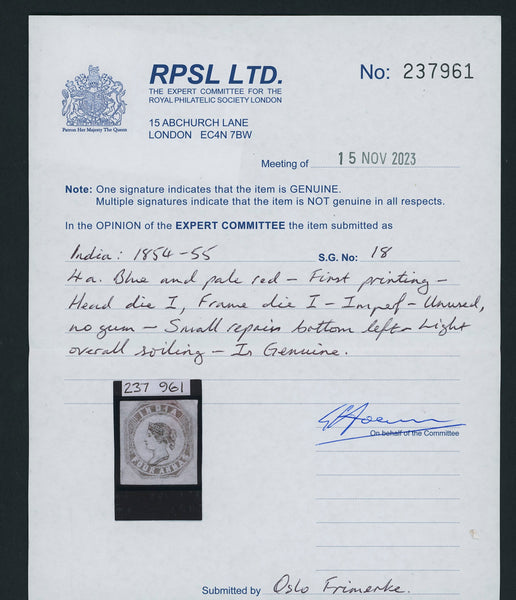 RPSL LTD.
THE EXPERT COMMITTEE FOR THE
ROYAL PHILATELIC SOCIETY LONDON
Patron Her Majesty The Queen
15 ABCHURCH LANE
LONDON EC4N 7BW
No: 237961
Meeting of 15 NOV 2023
Note: One signature indicates that the item is GENUINE.
Multiple signatures indicate that the item is NOT genuine in all respects.
In the OPINION of the EXPERT COMMITTEE the item submitted as
India: 1854-55 S.G. No: 18
4a. Blue and pale red - First printing -
Head die I, Frame die I - Imperf - Unused,
no gum - Small repairs bottom left - Light
overall soiling - Is Genuine.
237 961
INDIA
FOUR ANNAS
On behalf of the Committee
Submitted by Oslo Frimerke.